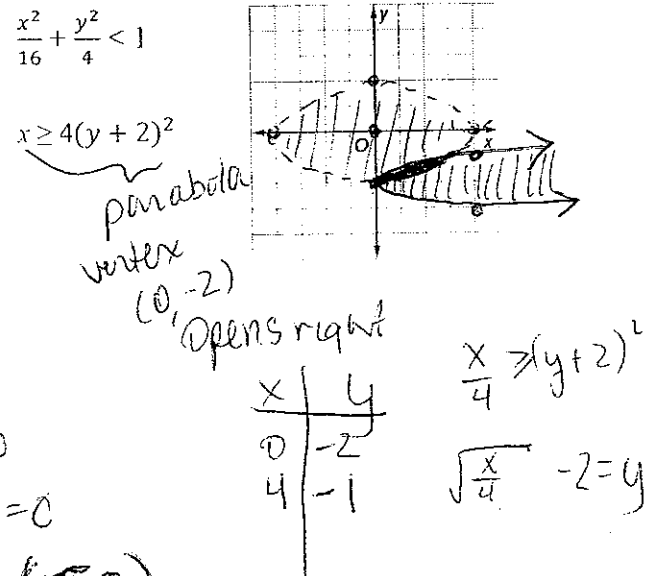 x²/16 + y²/4 < 1
x ≥ 4(y + 2)²
parabola
vertex
(0, -2)
opens right
y
O
x
x y
0 -2
4 -1
x/4 ≥ (y+2)²
√(x/4) -2 = y
=0